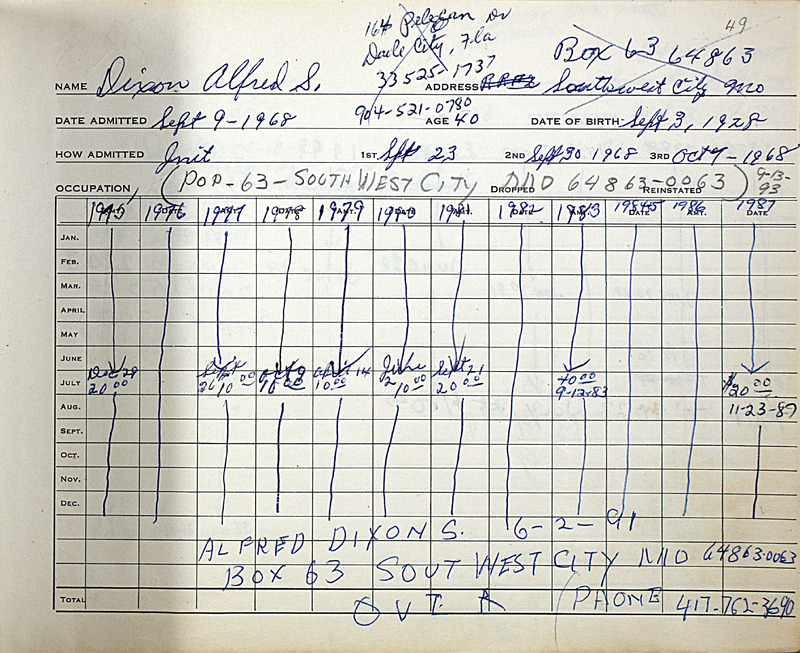 49
164 Pelican Dr
Dade City, Fla
33525-1737
904-521-0780
Box 63 64863
NAME Dixon Alfred S. ADDRESS Southwest City Mo
DATE ADMITTED Sept 9-1968 AGE 40 DATE OF BIRTH Sept 3, 1928
HOW ADMITTED Init 1ST Sept 23 2ND Sept 30 1968 3RD Oct 7-1968
OCCUPATION (POD-63-SOUTH WEST CITY MO 64863-0063) 9-13-93
DROPPED REINSTATED
1975 1976 1977 1978 1979 1980 1981 1982 1983 1985 1986 1987
DATE AMT. DATE AMT. DATE
JAN.
FEB.
MAR.
APRIL
MAY
JUNE
Dec 29 Sept April 14 June Sept 21
JULY 20 00 26 10 00 10 00 10 00 2 10 00 20 00 40 00 $20 00
9-12-83
AUG. 11-23-87
SEPT.
OCT.
NOV.
DEC.
ALFRED DIXON S. 6-2-91
BOX 63 SOUT WEST CITY MO 64863-0063
TOTAL O V T. A PHONE 417-762-3690